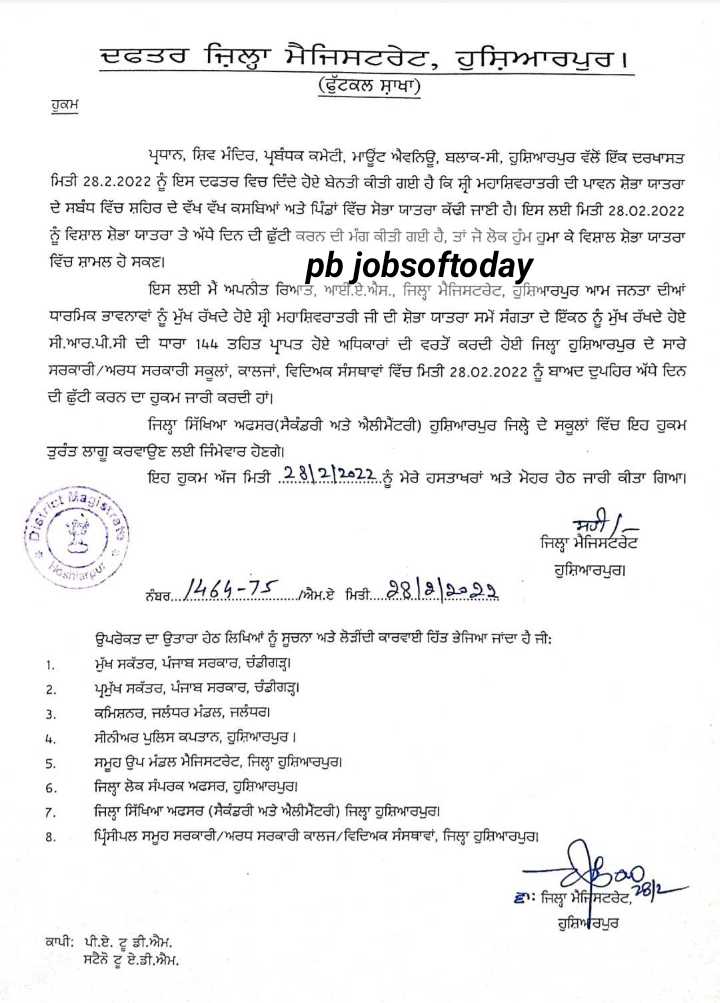 ਦਫਤਰ ਜ਼ਿਲ੍ਹਾ ਮੈਜਿਸਟਰੇਟ, ਹੁਸ਼ਿਆਰਪੁਰ।
(ਫੁੱਟਕਲ ਸ਼ਾਖਾ)
ਹੁਕਮ
ਪ੍ਰਧਾਨ, ਸ਼ਿਵ ਮੰਦਿਰ, ਪ੍ਰਬੰਧਕ ਕਮੇਟੀ, ਮਾਊਂਟ ਐਵਨਿਊ, ਬਲਾਕ-ਸੀ, ਹੁਸ਼ਿਆਰਪੁਰ ਵੱਲੋਂ ਇੱਕ ਦਰਖਾਸਤ
ਮਿਤੀ 28.2.2022 ਨੂੰ ਇਸ ਦਫਤਰ ਵਿਚ ਦਿੰਦੇ ਹੋਏ ਬੇਨਤੀ ਕੀਤੀ ਗਈ ਹੈ ਕਿ ਸ਼੍ਰੀ ਮਹਾਸ਼ਿਵਰਾਤਰੀ ਦੀ ਪਾਵਨ ਸ਼ੋਭਾ ਯਾਤਰਾ
ਦੇ ਸਬੰਧ ਵਿੱਚ ਸ਼ਹਿਰ ਦੇ ਵੱਖ ਵੱਖ ਕਸਬਿਆਂ ਅਤੇ ਪਿੰਡਾਂ ਵਿੱਚ ਸੋਭਾ ਯਾਤਰਾ ਕੱਢੀ ਜਾਣੀ ਹੈ। ਇਸ ਲਈ ਮਿਤੀ 28.02.2022
ਨੂੰ ਵਿਸ਼ਾਲ ਸ਼ੋਭਾ ਯਾਤਰਾ ਤੇ ਅੱਧੇ ਦਿਨ ਦੀ ਛੁੱਟੀ ਕਰਨ ਦੀ ਮੰਗ ਕੀਤੀ ਗਈ ਹੈ, ਤਾਂ ਜੋ ਲੋਕ ਹੁੰਮ ਹੁਮਾ ਕੇ ਵਿਸ਼ਾਲ ਸ਼ੋਭਾ ਯਾਤਰਾ
ਵਿੱਚ ਸ਼ਾਮਲ ਹੋ ਸਕਣ।
pb jobsoftoday
ਇਸ ਲਈ ਮੈਂ ਅਪਨੀਤ ਰਿਆਤ, ਆਈ.ਏ.ਐਸ., ਜਿਲ੍ਹਾ ਮੈਜਿਸਟਰੇਟ, ਹੁਸ਼ਿਆਰਪੁਰ ਆਮ ਜਨਤਾ ਦੀਆਂ
ਧਾਰਮਿਕ ਭਾਵਨਾਵਾਂ ਨੂੰ ਮੁੱਖ ਰੱਖਦੇ ਹੋਏ ਸ਼੍ਰੀ ਮਹਾਸ਼ਿਵਰਾਤਰੀ ਜੀ ਦੀ ਸ਼ੋਭਾ ਯਾਤਰਾ ਸਮੇਂ ਸੰਗਤਾ ਦੇ ਇੱਕਠ ਨੂੰ ਮੁੱਖ ਰੱਖਦੇ ਹੋਏ
ਸੀ.ਆਰ.ਪੀ.ਸੀ ਦੀ ਧਾਰਾ 144 ਤਹਿਤ ਪ੍ਰਾਪਤ ਹੋਏ ਅਧਿਕਾਰਾਂ ਦੀ ਵਰਤੋਂ ਕਰਦੀ ਹੋਈ ਜਿਲ੍ਹਾ ਹੁਸ਼ਿਆਰਪੁਰ ਦੇ ਸਾਰੇ
ਸਰਕਾਰੀ/ਅਰਧ ਸਰਕਾਰੀ ਸਕੂਲਾਂ, ਕਾਲਜਾਂ, ਵਿਦਿਅਕ ਸੰਸਥਾਵਾਂ ਵਿੱਚ ਮਿਤੀ 28.02.2022 ਨੂੰ ਬਾਅਦ ਦੁਪਹਿਰ ਅੱਧੇ ਦਿਨ
ਦੀ ਛੁੱਟੀ ਕਰਨ ਦਾ ਹੁਕਮ ਜਾਰੀ ਕਰਦੀ ਹਾਂ।
ਜਿਲ੍ਹਾ ਸਿੱਖਿਆ ਅਫਸਰ(ਸੈਕੰਡਰੀ ਅਤੇ ਐਲੀਮੈਂਟਰੀ) ਹੁਸ਼ਿਆਰਪੁਰ ਜਿਲ੍ਹੇ ਦੇ ਸਕੂਲਾਂ ਵਿੱਚ ਇਹ ਹੁਕਮ
ਤੁਰੰਤ ਲਾਗੂ ਕਰਵਾਉਣ ਲਈ ਜਿੰਮੇਵਾਰ ਹੋਣਗੇ।
ਇਹ ਹੁਕਮ ਅੱਜ ਮਿਤੀ 28/2/2022 ਨੂੰ ਮੇਰੇ ਹਸਤਾਖਰਾਂ ਅਤੇ ਮੋਹਰ ਹੇਠ ਜਾਰੀ ਕੀਤਾ ਗਿਆ।
District Magistrate
Hoshiarpur
ਸਹੀ/-
ਜਿਲ੍ਹਾ ਮੈਜਿਸਟਰੇਟ
ਹੁਸ਼ਿਆਰਪੁਰ।
ਨੰਬਰ...1464-75....../ਐਮ.ਏ ਮਿਤੀ....28/2/2022
ਉਪਰੋਕਤ ਦਾ ਉਤਾਰਾ ਹੇਠ ਲਿਖਿਆਂ ਨੂੰ ਸੂਚਨਾ ਅਤੇ ਲੋੜੀਂਦੀ ਕਾਰਵਾਈ ਹਿੱਤ ਭੇਜਿਆ ਜਾਂਦਾ ਹੈ ਜੀ:
1. ਮੁੱਖ ਸਕੱਤਰ, ਪੰਜਾਬ ਸਰਕਾਰ, ਚੰਡੀਗੜ੍ਹ।
2. ਪ੍ਰਮੁੱਖ ਸਕੱਤਰ, ਪੰਜਾਬ ਸਰਕਾਰ, ਚੰਡੀਗੜ੍ਹ।
3. ਕਮਿਸ਼ਨਰ, ਜਲੰਧਰ ਮੰਡਲ, ਜਲੰਧਰ।
4. ਸੀਨੀਅਰ ਪੁਲਿਸ ਕਪਤਾਨ, ਹੁਸ਼ਿਆਰਪੁਰ।
5. ਸਮੂਹ ਉਪ ਮੰਡਲ ਮੈਜਿਸਟਰੇਟ, ਜਿਲ੍ਹਾ ਹੁਸ਼ਿਆਰਪੁਰ।
6. ਜਿਲ੍ਹਾ ਲੋਕ ਸੰਪਰਕ ਅਫਸਰ, ਹੁਸ਼ਿਆਰਪੁਰ।
7. ਜਿਲ੍ਹਾ ਸਿੱਖਿਆ ਅਫਸਰ (ਸੈਕੰਡਰੀ ਅਤੇ ਐਲੀਮੈਂਟਰੀ) ਜਿਲ੍ਹਾ ਹੁਸ਼ਿਆਰਪੁਰ।
8. ਪ੍ਰਿੰਸੀਪਲ ਸਮੂਹ ਸਰਕਾਰੀ/ਅਰਧ ਸਰਕਾਰੀ ਕਾਲਜ/ਵਿਦਿਅਕ ਸੰਸਥਾਵਾਂ, ਜਿਲ੍ਹਾ ਹੁਸ਼ਿਆਰਪੁਰ।
28/2
ਜਿਲ੍ਹਾ ਮੈਜਿਸਟਰੇਟ,
ਹੁਸ਼ਿਆਰਪੁਰ
ਕਾਪੀ: ਪੀ.ਏ. ਟੂ ਡੀ.ਐਮ.
ਸਟੈਨੋ ਟੂ ਏ.ਡੀ.ਐਮ.